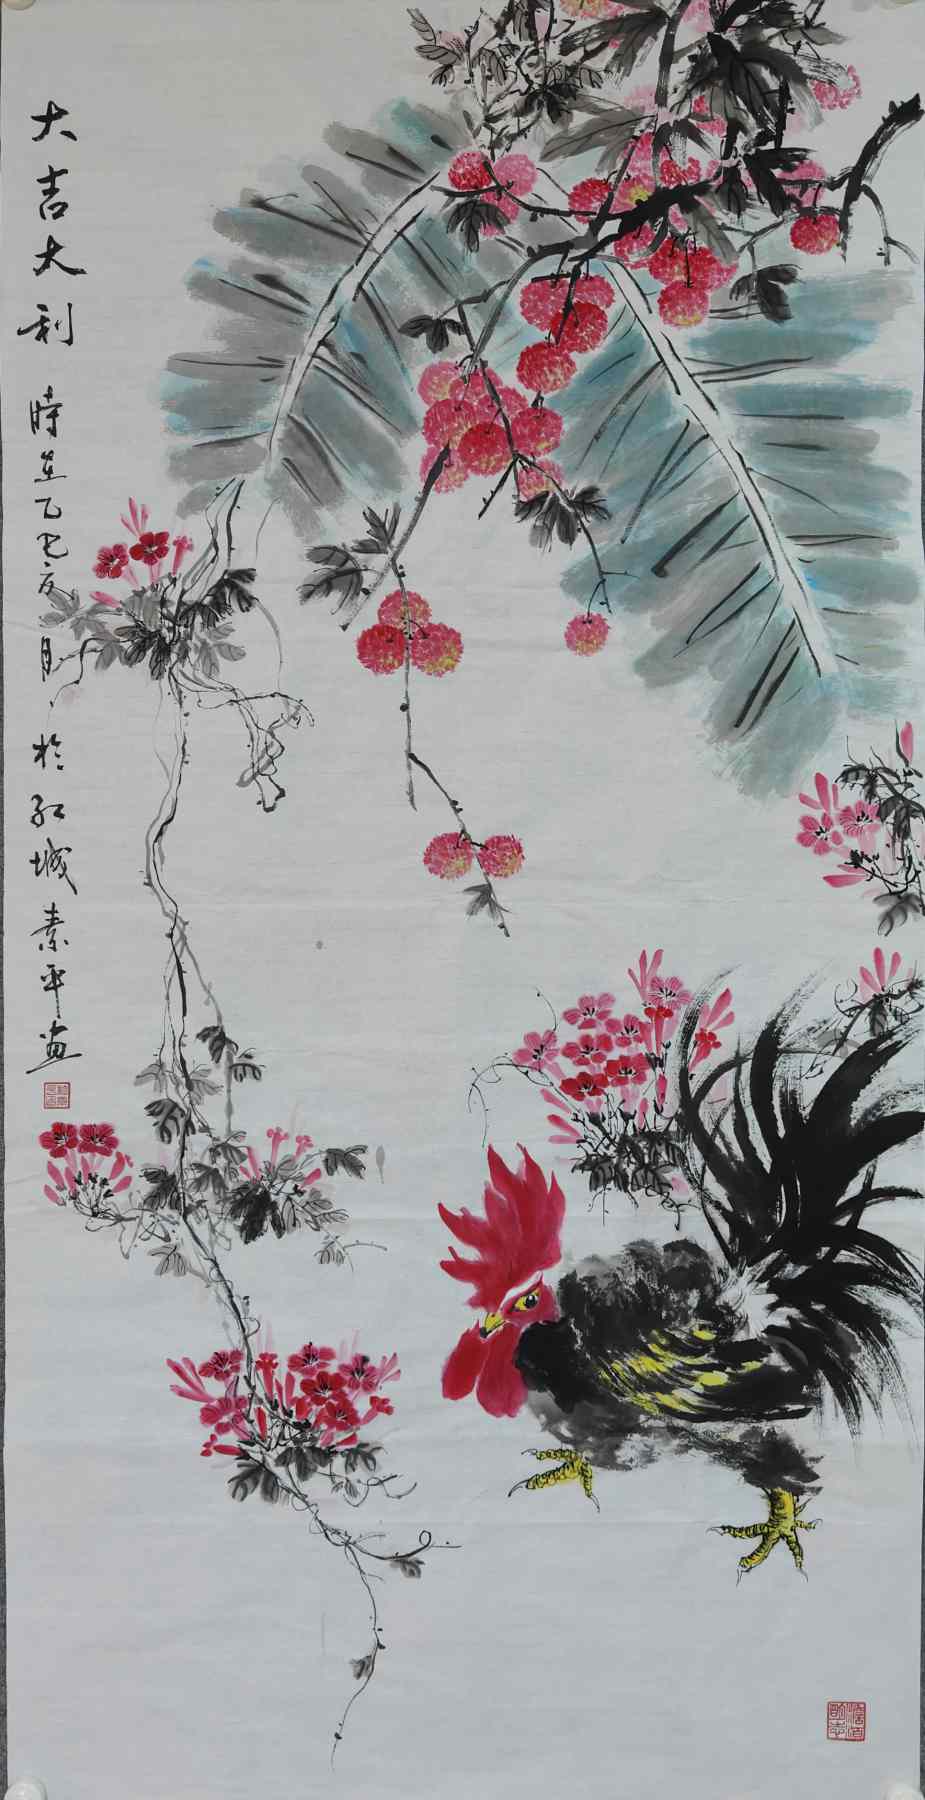 大吉大利
時在乙巳夏月於红城素平画